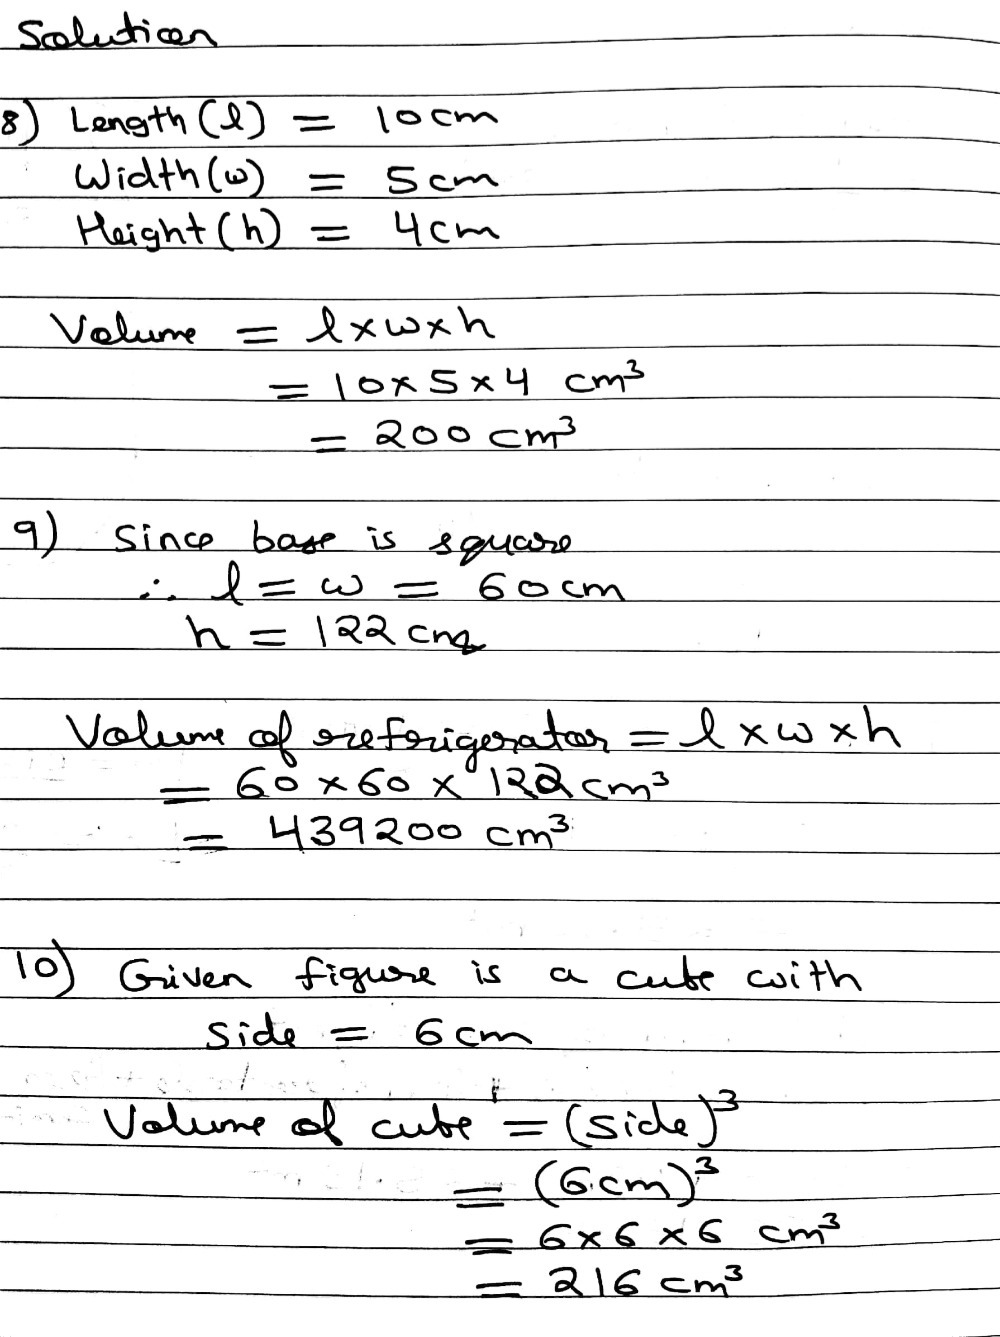 Solution
8) Length (l) = 10 cm
Width (w) = 5 cm
Height (h) = 4 cm
Volume = l × w × h
= 10 × 5 × 4 cm³
= 200 cm³
9) Since base is square
∴ l = w = 60 cm
h = 122 cm
Volume of refrigerator = l × w × h
= 60 × 60 × 122 cm³
= 439200 cm³
10) Given figure is a cube with
side = 6 cm
Volume of cube = (side)³
= (6 cm)³
= 6 × 6 × 6 cm³
= 216 cm³